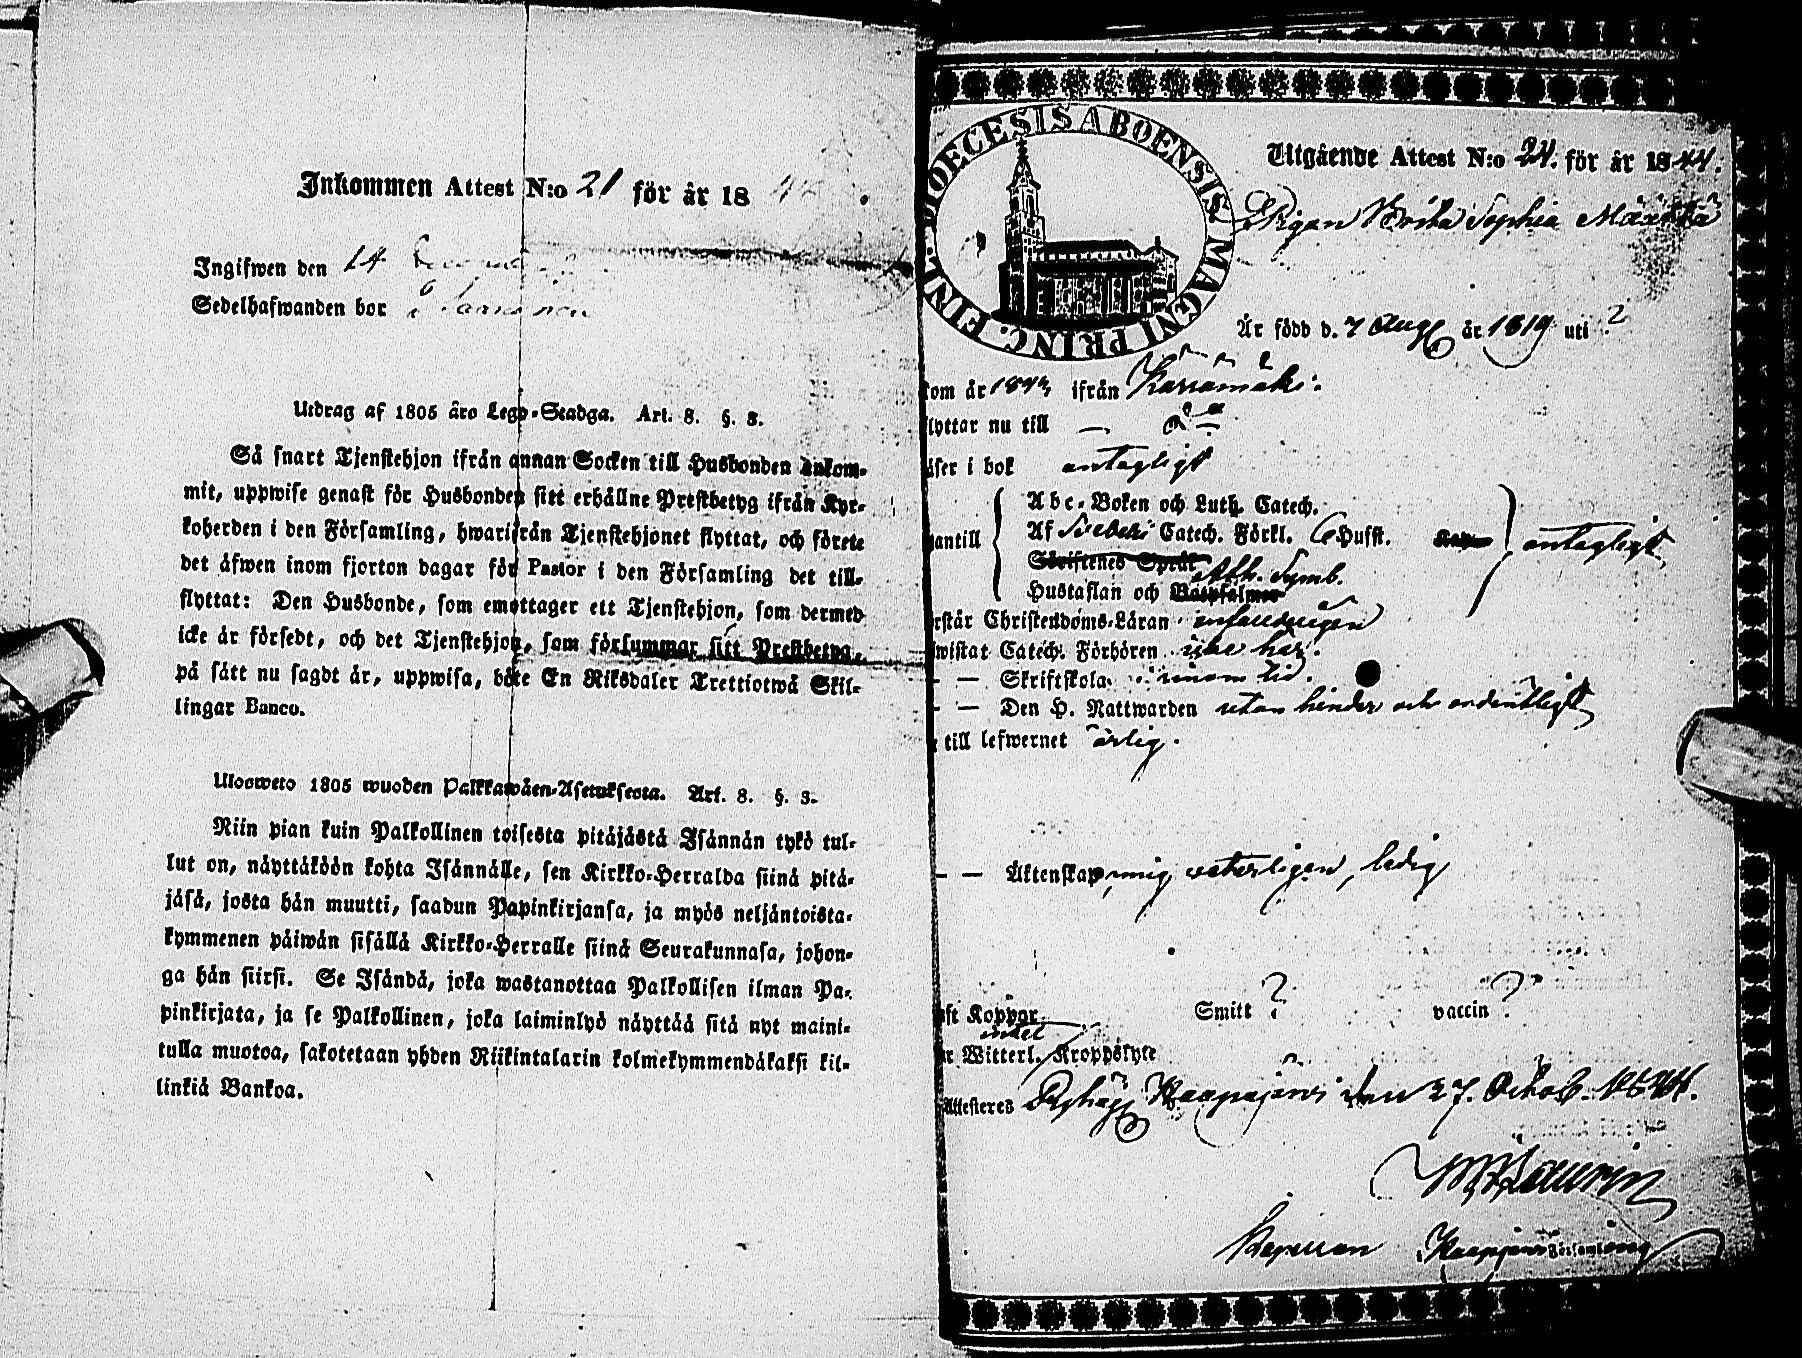 Inkommen Attest N:o 21 för år 18
Ingifwen den 14
Sedelhafwanden bor
Utdrag af 1805 års Lego-Stadga. Art. 8. §. 3.
Så snart Tjenstehjon ifrån annan Socken till Husbonden ankom-
mit, uppwise genast för Husbonden sitt erhållne Prestbetyg ifrån Kyr-
koherden i den Församling, hwarifrån Tjenstehjonet flyttat, och förete
det äfwen inom fjorton dagar för Pastor i den Församling det till-
flyttat: Den Husbonde, som emottager ett Tjenstehjon, som dermed
icke är försedt, och det Tjenstehjon, som försummar sitt Prestbetyg,
på sätt nu sagdt är, uppwisa, böte En Riksdaler Trettiotwå Skil-
lingar Banco.
Ulosweto 1805 wuoden Palkkawäen-Asetuksesta. Art. 8. §. 3.
Niin pian kuin Palkollinen toisesta pitäjästä Isännän tykö tul-
lut on, näyttäköön kohta Isännälle, sen Kirkko-Herralda siinä pitä-
jäsä, josta hän muutti, saadun Papinkirjansa, ja myös neljäntoista-
kymmenen päiwän sisällä Kirkko-Herralle siinä Seurakunnasa, johon-
ga hän siirsi. Se Isändä, joka wastanottaa Palkollisen ilman Pa-
pinkirjata, ja se Palkollinen, joka laiminlyö näyttää sitä nyt maini-
tulla muotoa, sakotetaan yhden Riikintalarin kolmekymmendäkaksi kil-
linkiä Bankoa.
DIOECESIS ABOENSIS MAGNI PRINC. FINL.
Utgående Attest N:o 24. för år 1844.
Pigan Brita Sophia
Är född d. 7 Aug är 1819 uti ?
kom år 1843 ifrån Karsämäki.
flyttar nu till
läser i bok antagligt
Abc-Boken och Luth. Catech.
Af Svebelii Catech. Förkl. 6 Hufst.
antill antagligt
Skriftenes Språk Ath. Symb.
Hustaflan och Botpsalmer
rstår Christendoms-Läran
wistat Catech. Förhören icke här.
— — Skriftskola inom tid.
— — Den H. Nattwarden utan hinder och ordentligt
till lefwernet ärlig.
— — Äktenskap, mig veterligen, ledig
ft Koppor Smitt ? vaccin ?
intet
r Witterl. Kroppslyte
Attesteres Pyhäj Haapajärvi den 27. Octob. 1844.
Kapellan Haapajärvi Församling